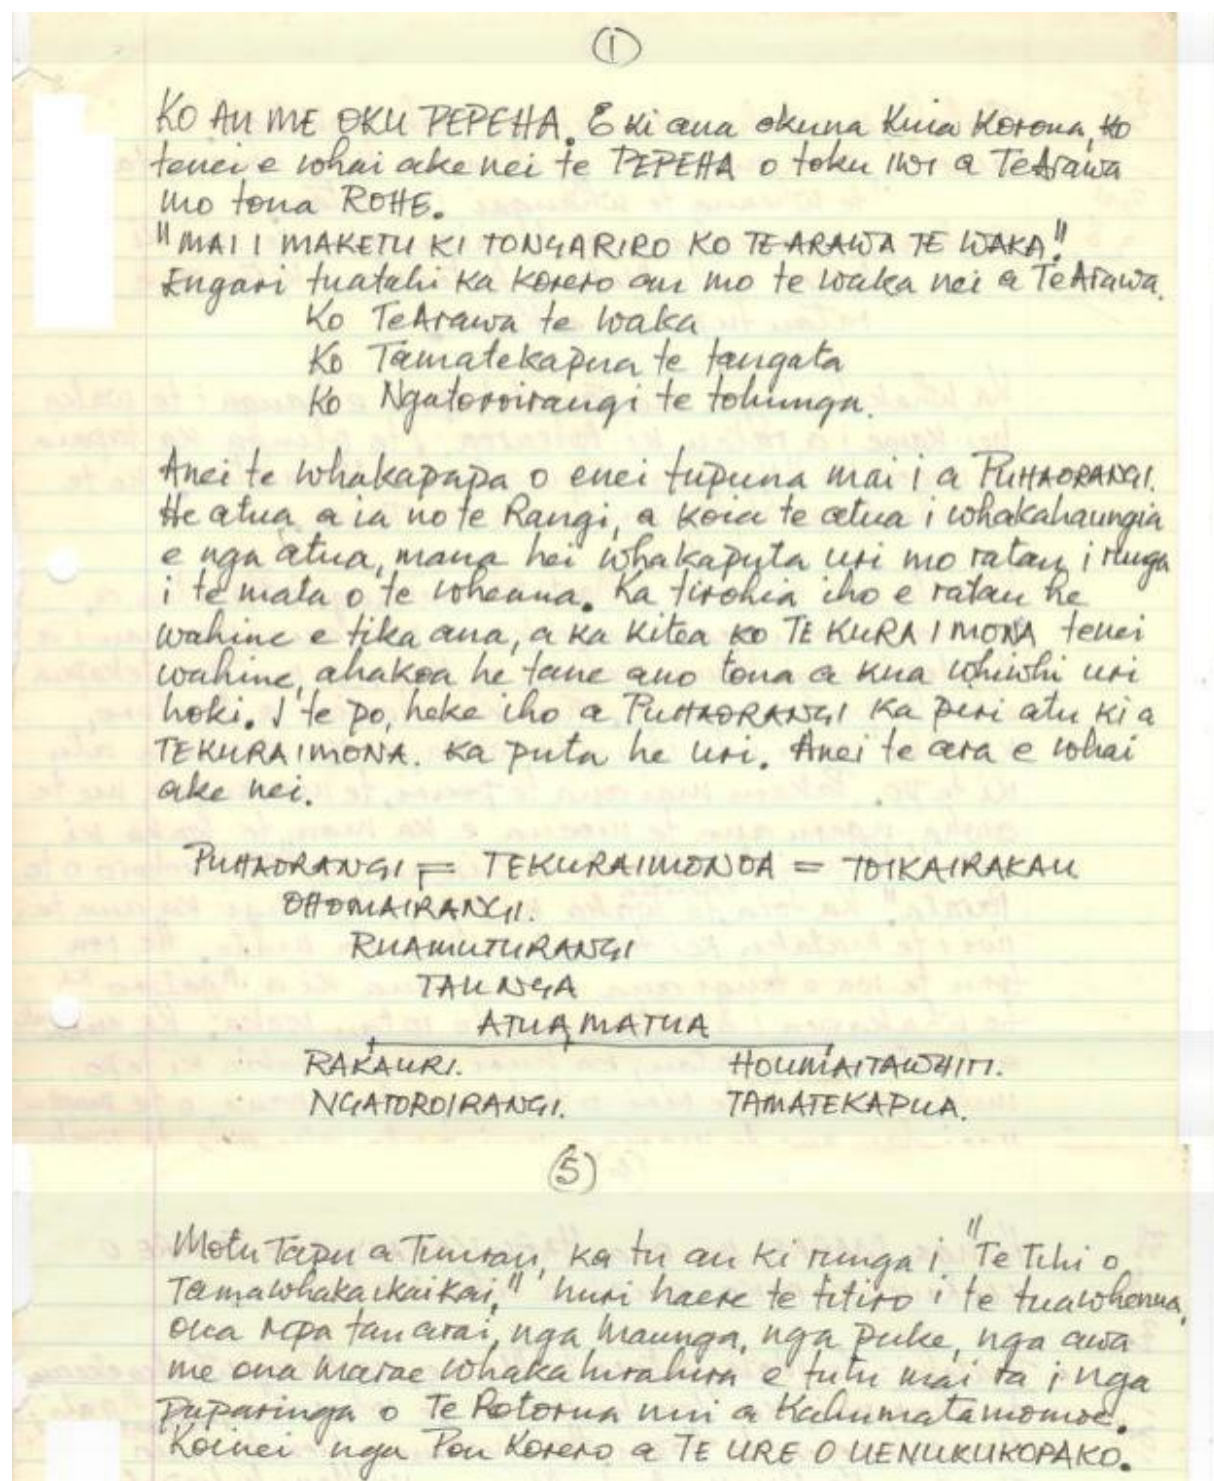 1
KO AU ME OKU PEPEHA. E ki ana okuna Kuia Korona, ko
tenei e whai ake nei te PEPEHA o toku IWI a TeArawa
mo tona ROHE.
"MAI I MAKETU KI TONGARIRO KO TE ARAWA TE WAKA."
Engari tuatahi ka Korero au mo te waka nei a TeArawa.
Ko TeArawa te waka
Ko Tamatekapua te tangata
Ko Ngatoroirangi te tohunga.
Anei te whakapapa o enei tupuna mai i a PUHAORANGI.
He atua a ia no te Rangi, a koia te atua i whakahaungia
e nga atua, mana hei whakaputa uri mo ratau i runga
i te mata o te whenua. Ka tirohia iho e ratau he
wahine e tika ana, a ka kitea ko TE KURA I MONA tenei
wahine, ahakoa he tane ano tona a kua whiwhi uri
hoki. I te po, heke iho a PUHAORANGI ka piri atu ki a
TEKURAIMONA. Ka puta he uri. Anei te ara e whai
ake nei.
PUHAORANGI = TEKURAIMONOA = TOIKAIRAKAU
OHOMAIRANGI.
RUAMUTURANGI
TAUNGA
ATUAMATUA
RAKAURI. HOUMAITAWHITI.
NGATOROIRANGI. TAMATEKAPUA.
5
Motu Tapu a Tinirau, ka tu au ki runga i "Te Tihi o
Tamawhakaikaikai," huri haere te titiro i te tuawhenua,
ona ropa tau arai, nga Maunga, nga puke, nga awa
me ona Marae whakahirahira e tutu mai ra i nga
puparinga o Te Rotorua nui a Kahumatamomoe.
Koinei nga Pou Korero a TE URE O UENUKUKOPAKO.